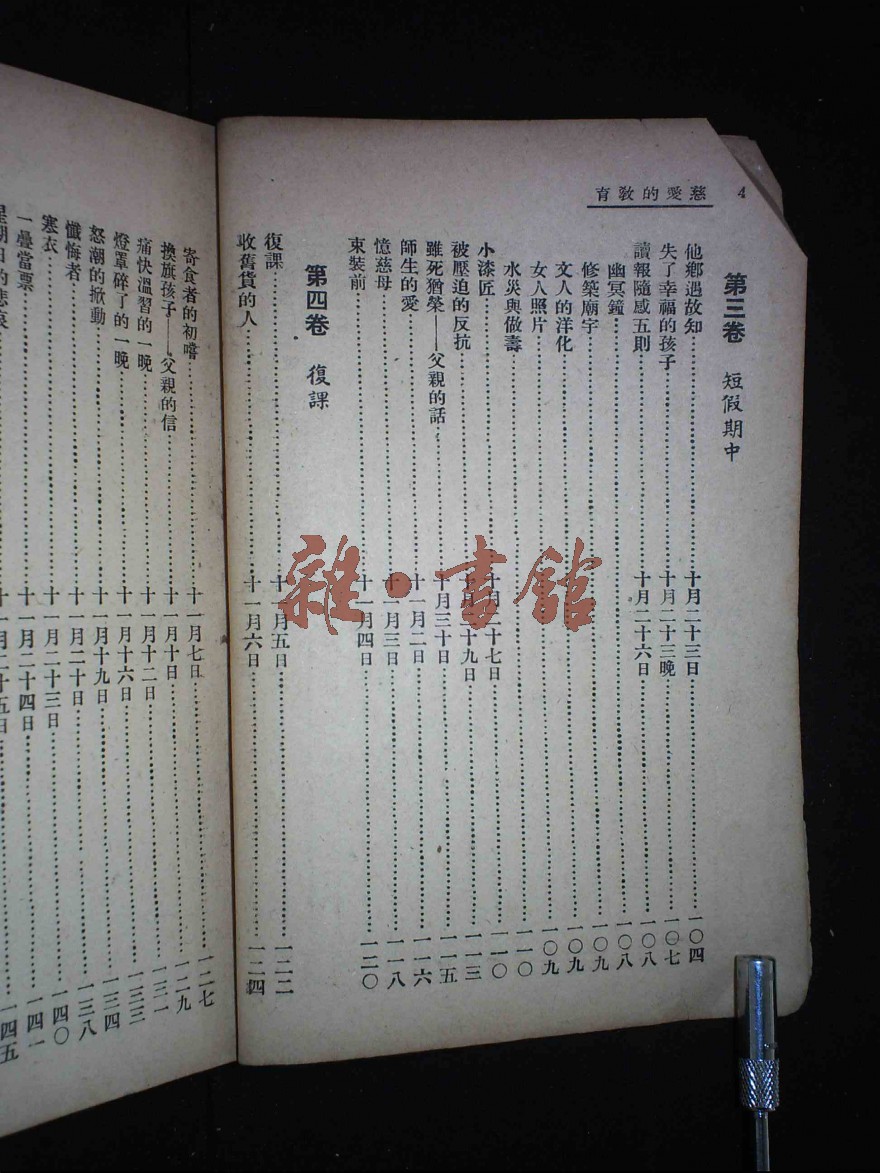 4 慈愛的教育
第三卷 短假期中
他鄉遇故知……十月二十三日……一〇四
失了幸福的孩子……十月二十三晚……一〇七
讀報隨感五則……十月二十六日……一〇八
幽冥鐘……一〇八
修築廟宇……一〇九
文人的洋化……一〇九
女人照片……一〇九
水災與做壽……一一〇
小漆匠……十月二十七日……一一〇
被壓迫的反抗……十月二十九日……一一三
雖死猶榮——父親的話……十月三十日……一一五
師生的愛……十一月二日……一一六
憶慈母……十一月三日……一一八
束裝前……十一月四日……一二〇
第四卷 復課
復課……十一月五日……一二二
收舊貨的人……十一月六日……一二四
寄食者的初嚐……十一月七日……一二七
換旗孩子——父親的信……十一月十日……一二九
痛快溫習的一晚……十一月十二日……一三一
燈罩碎了的一晚……十一月十六日……一三三
怒潮的掀動……十一月十九日……一三四
懺悔者……十一月二十日……一三八
寒衣……十一月二十三日……一四〇
一疊當票……十一月二十四日……一四一
星期日的悲哀……十一月二十五日……一四五
雜·書館